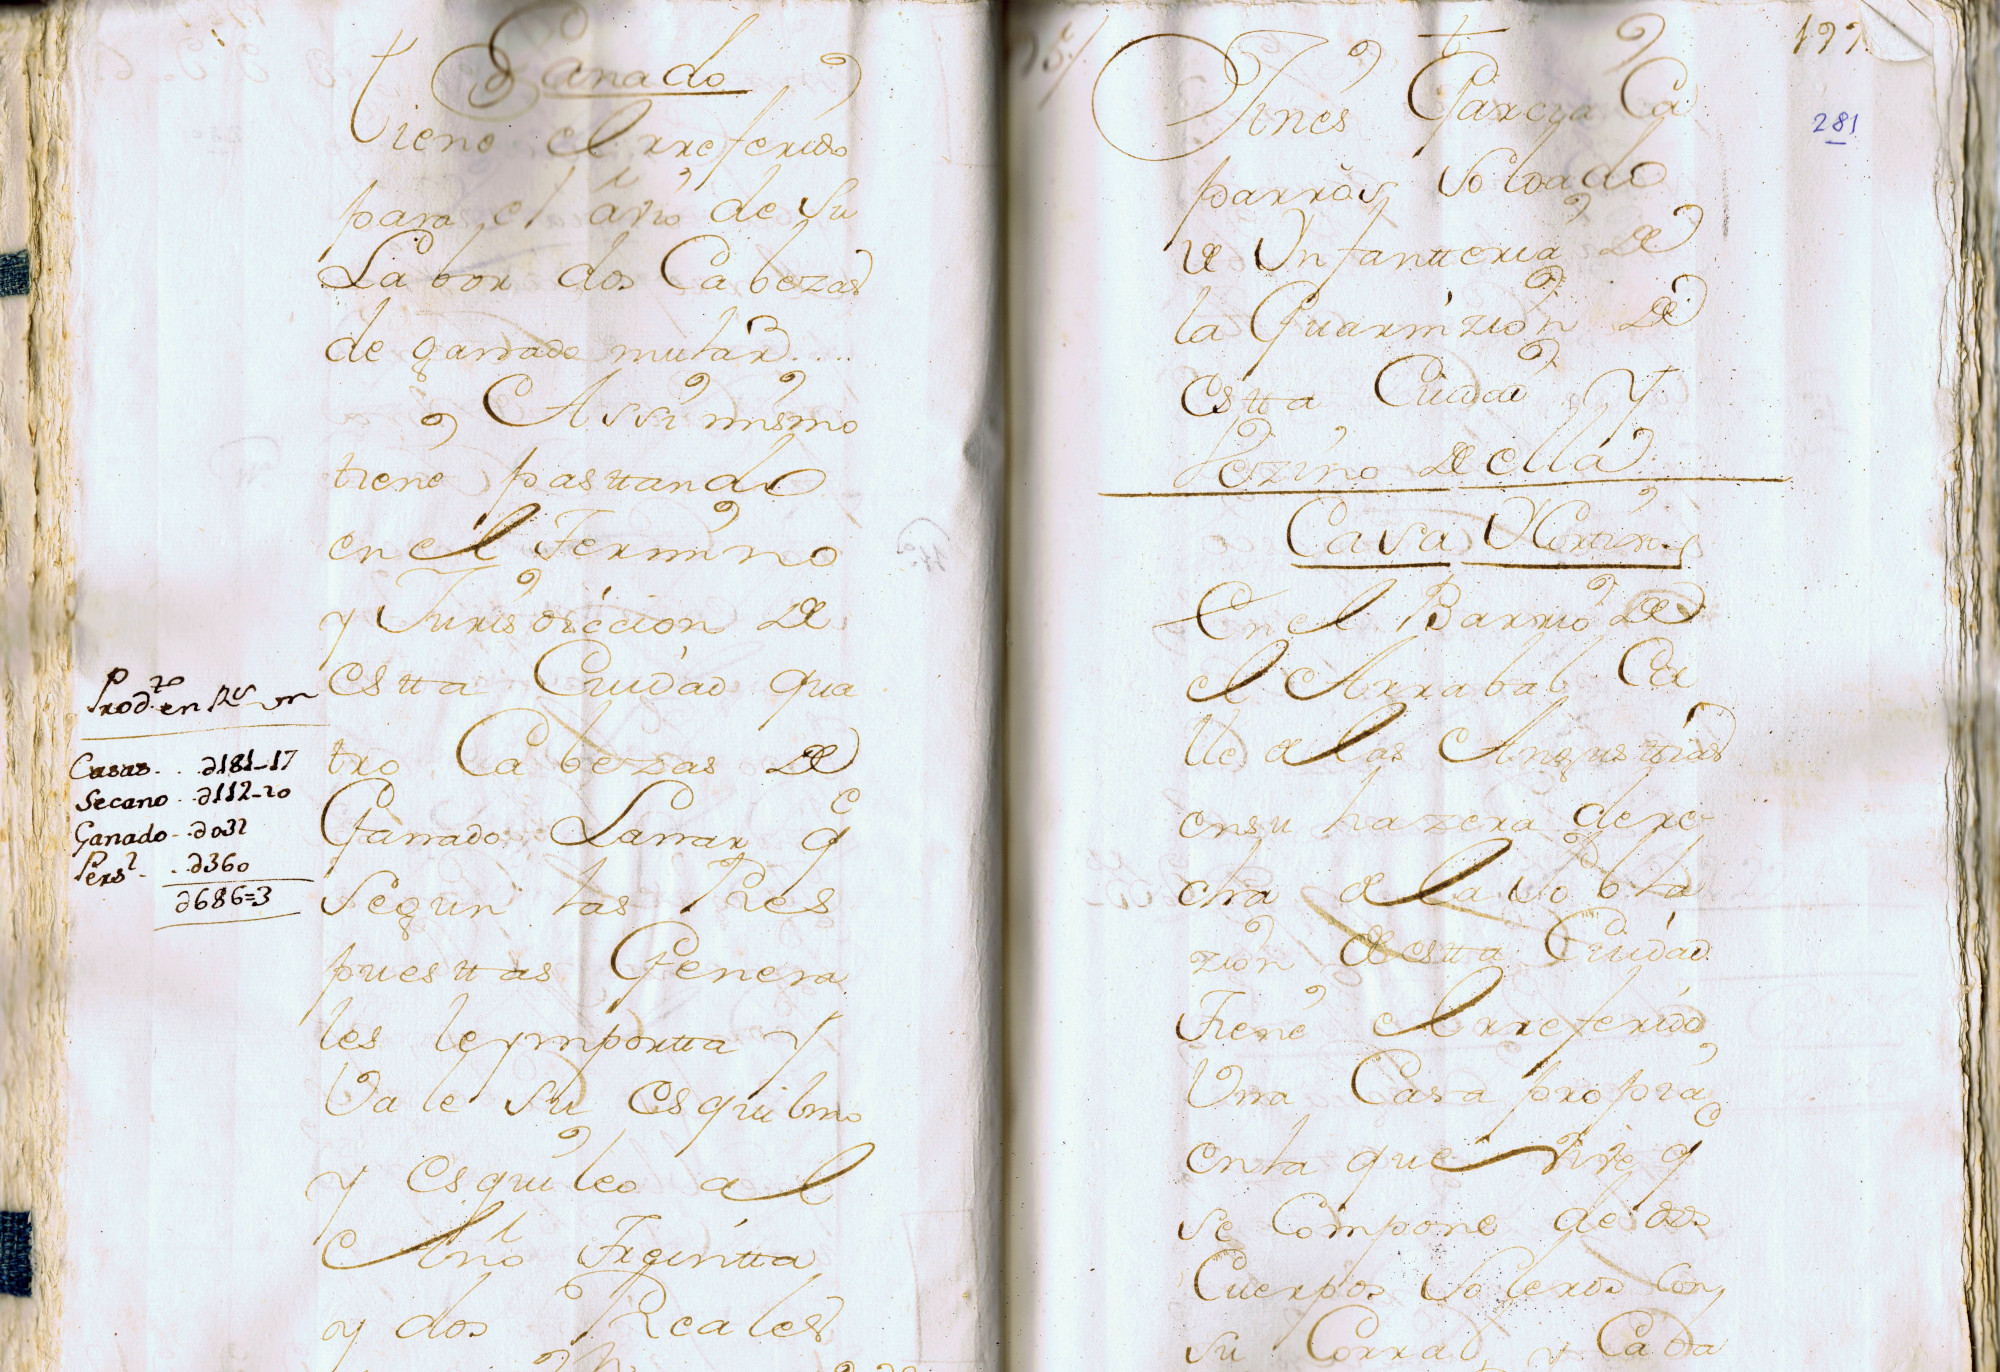 Ganado
Tiene el rreferido
para el avio de su
Labor dos Cabezas
de ganado mular....
Assi mismo
tiene pasttando
en el Termino
y Jurisdiccion de
estta Ciudad qua
tro Cabezas de
Ganado Lanar q.e
segun las Res
puesttas Genera
les le ymportta y
Vale su esquilmo
y esquileo al
Año Treintta
y dos Reales
Prod.to en R.s vn
Casas... 181-17
Secano.. 112-20
Ganado-. 032
Pers.l -.. 360
686=3
Gines Garcia Ca
parros Soldado
de Ynfantteria de
la Guarnizion de
Estta Ciudad y
Vezino de ella
Casa Y Corrin.s
En el Barrio de
el Arrabal Ca
lle de las Angusttias
en su hazera dere-
cha de la Pobla
zion de estta Ciudad
Tiene el rreferido
Una Casa propia
en la que vive q.e
se Compone de dos
Cuerpos soleros con
su Corral y Cada
199
281